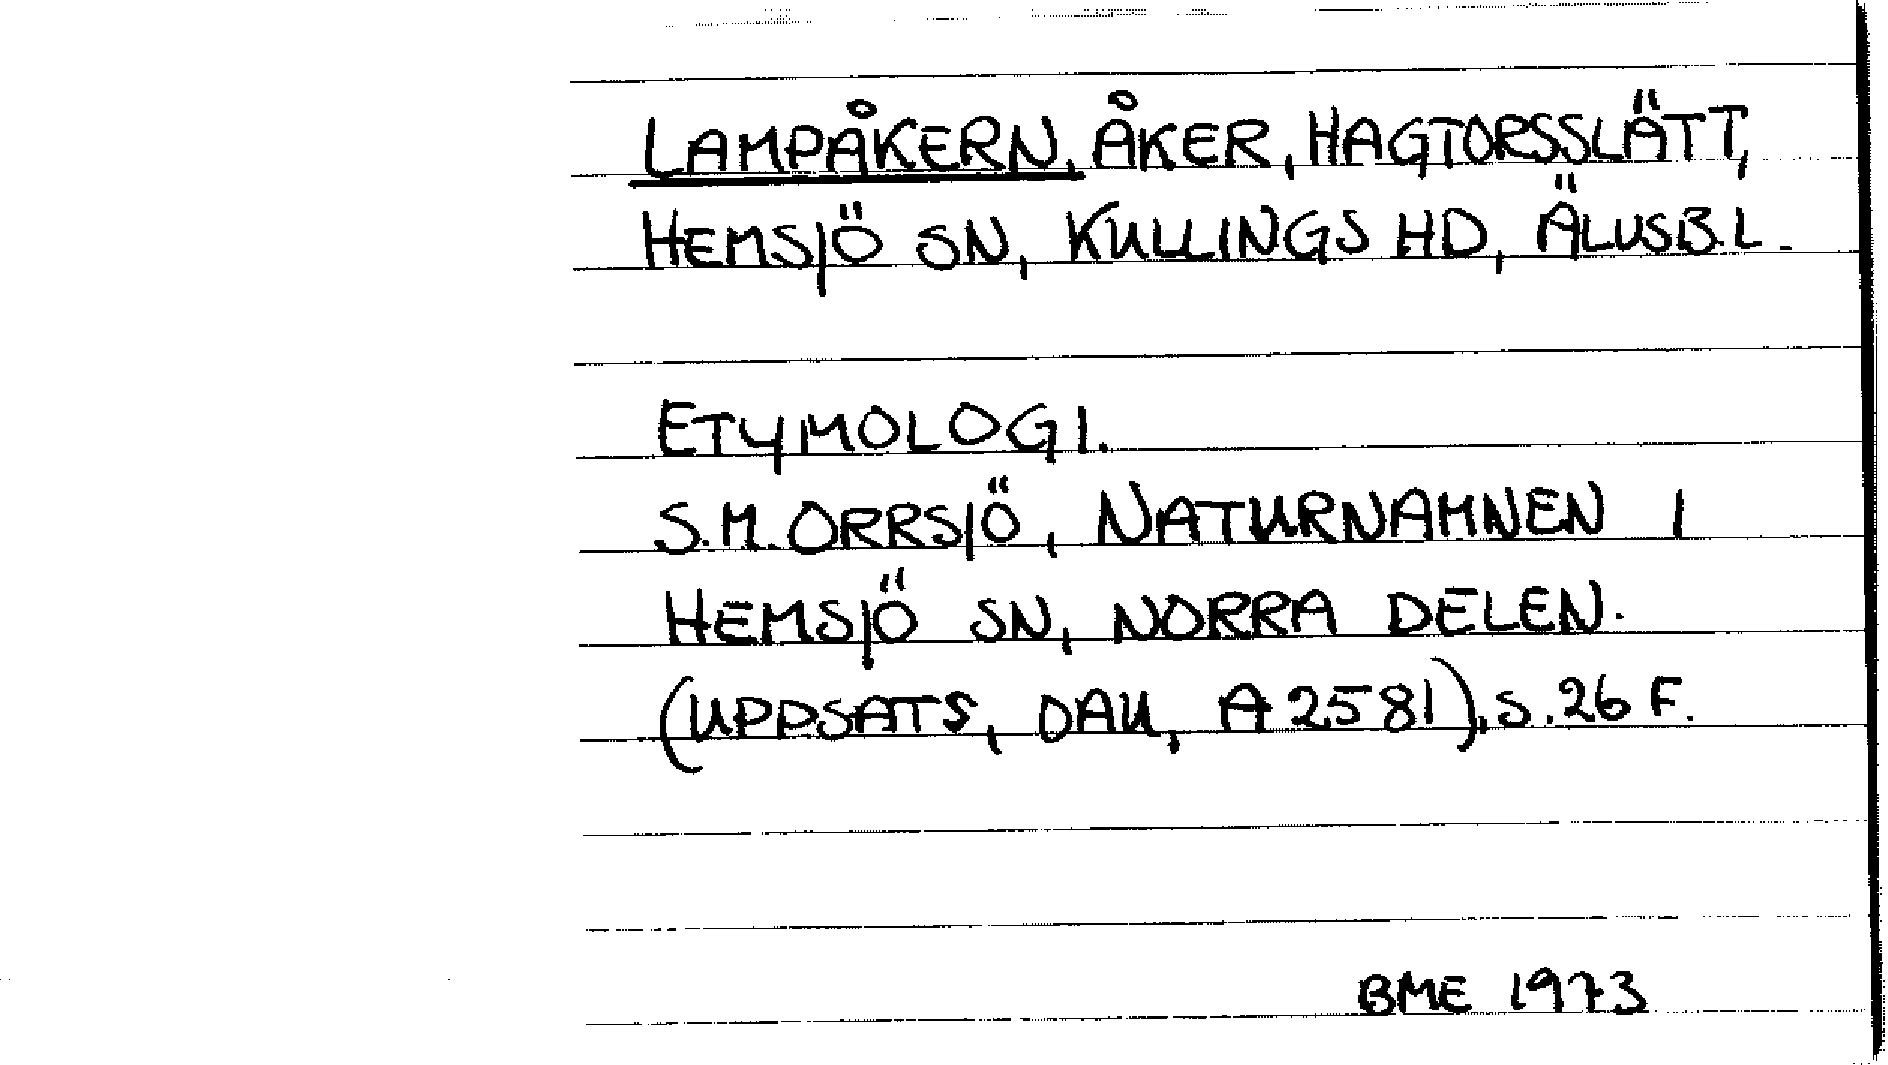 LAMPÅKERN, ÅKER, HAGTORSSLÄTT,
HEMSJÖ SN, KULLINGS HD, ÄLVSB.L.
ETYMOLOGI.
S.M. ORRSJÖ, NATURNAMNEN I
HEMSJÖ SN, NORRA DELEN.
(UPPSATS, DAU, A 2581), S. 26 F.
BME 1973